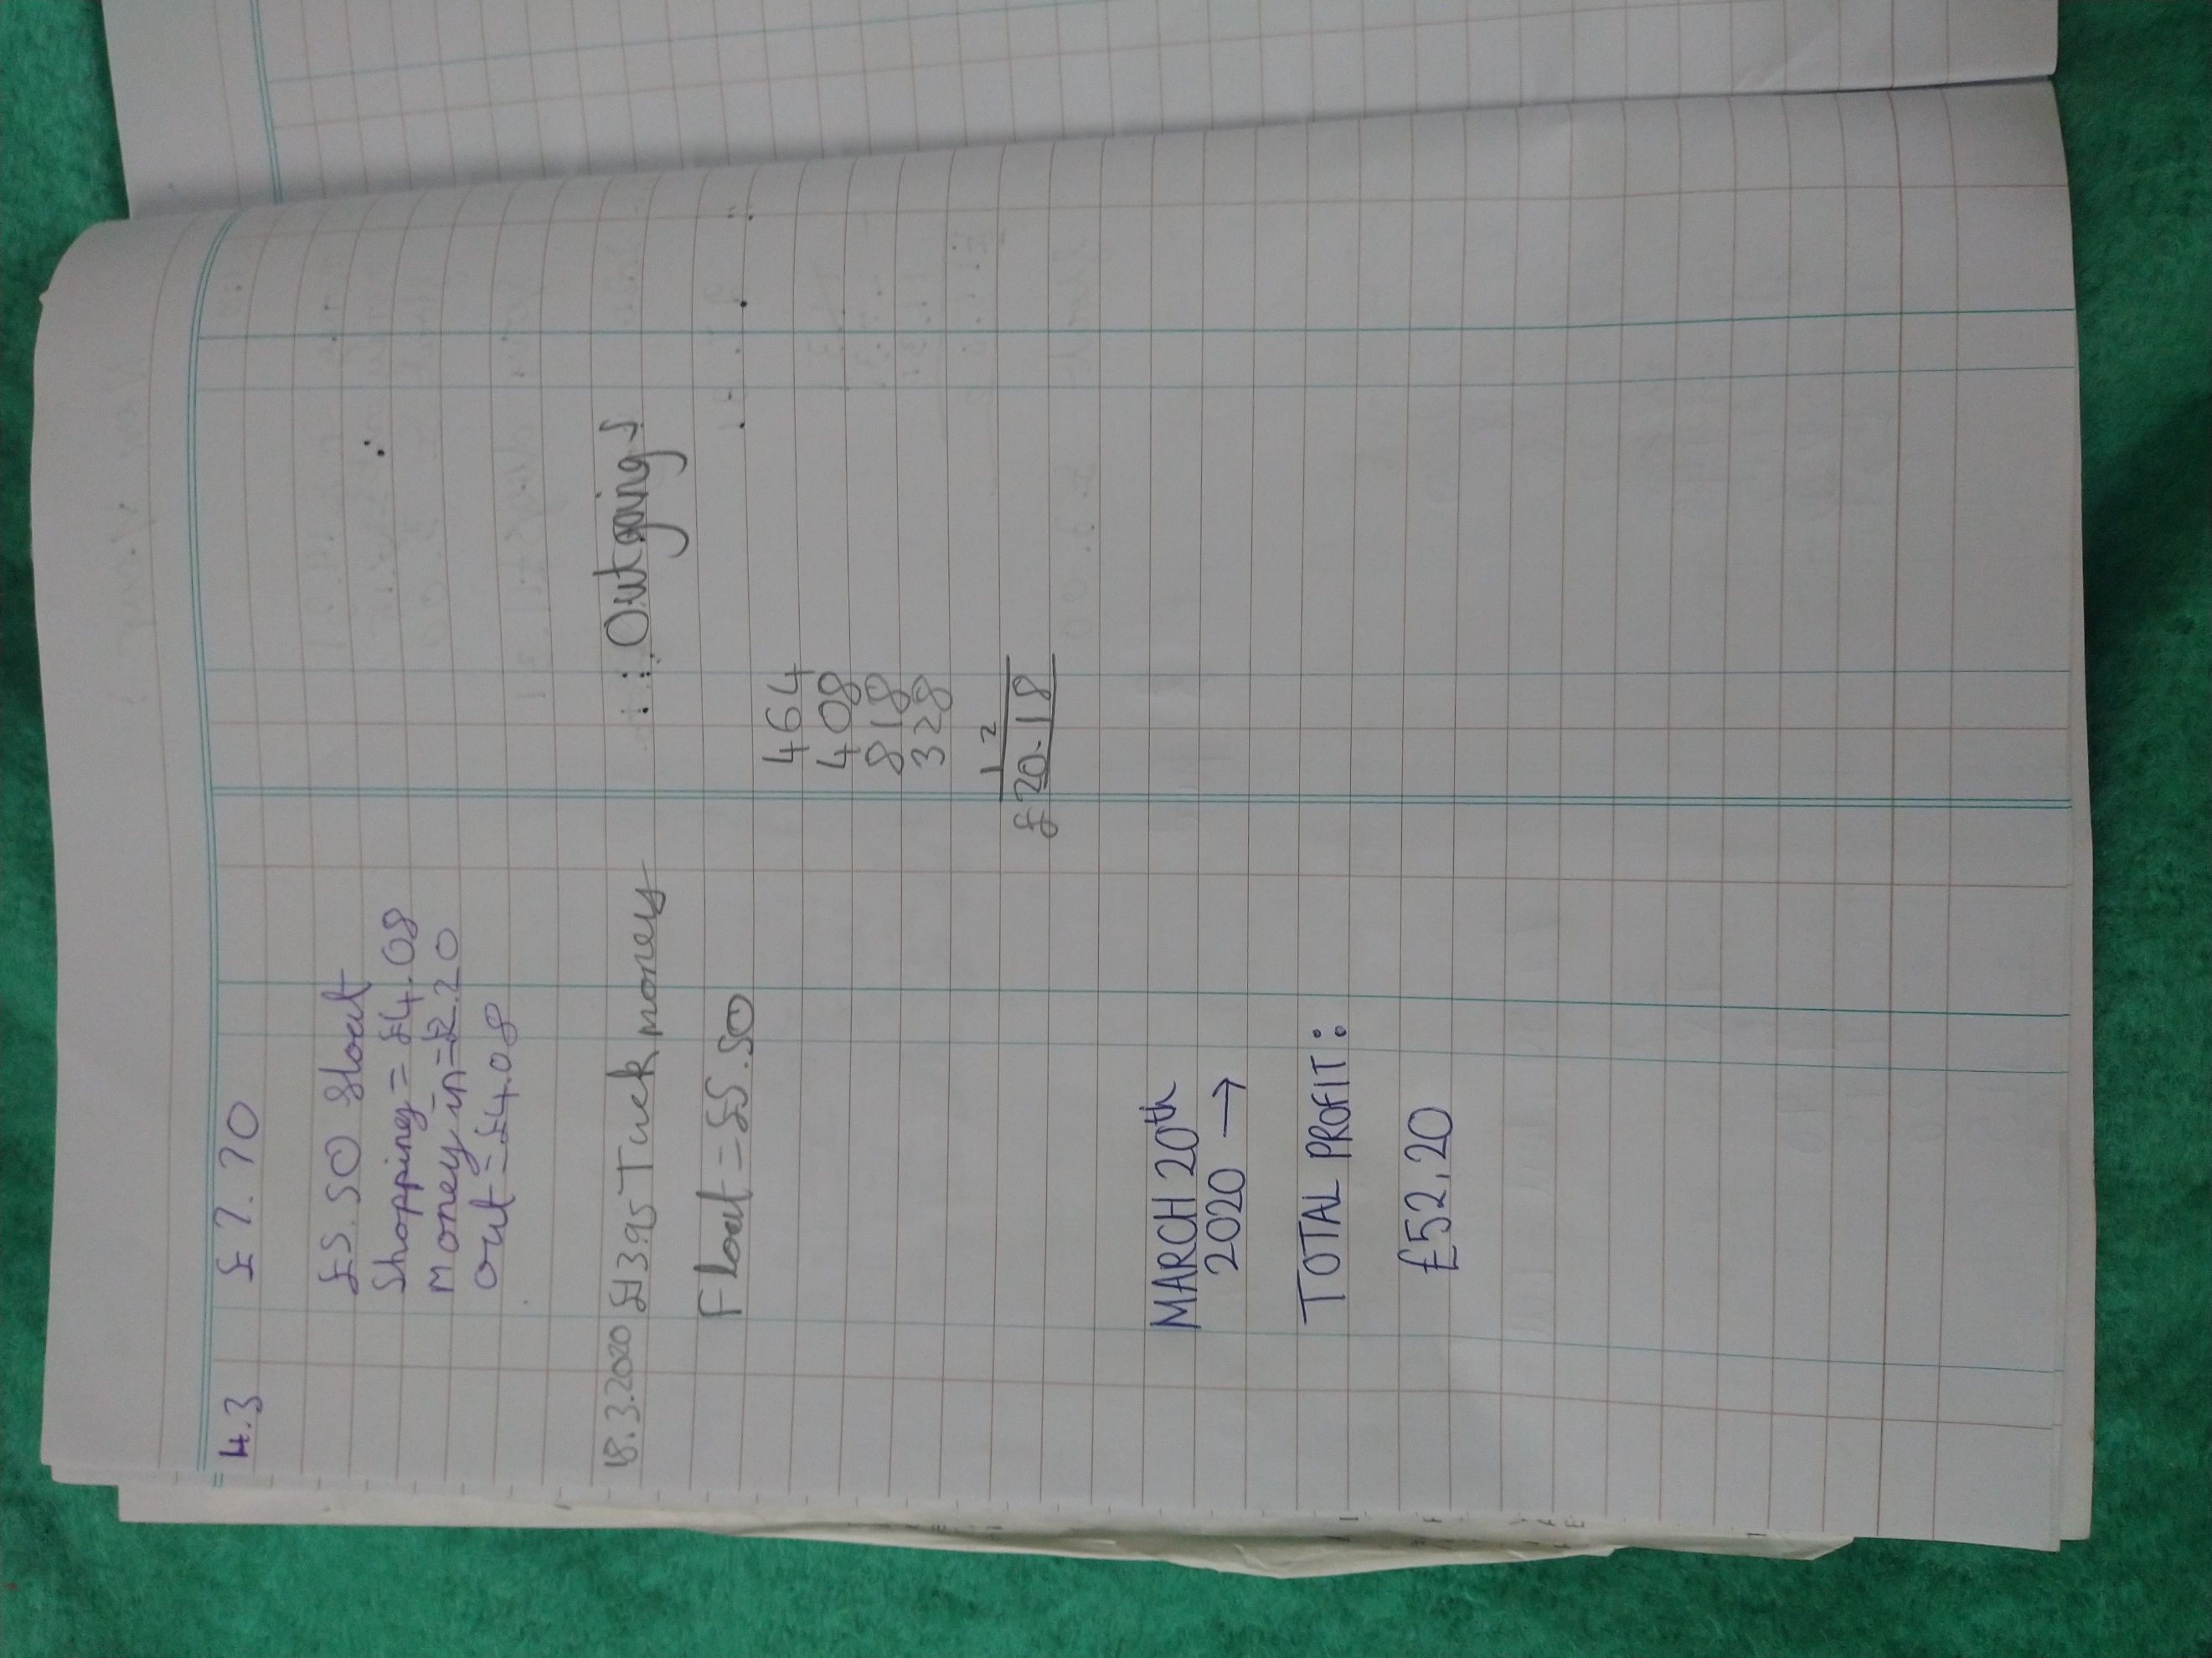 4.3 £7.70
£5.50 float
Shopping = £4.08
Money in = £2.20
out = £4.08
18.3.2020 £13.95 Tuck money Outgoings
Float = £5.50
464
408
818
328
1 2
£20.18
MARCH 20th
2020 →
TOTAL PROFIT:
£52.20